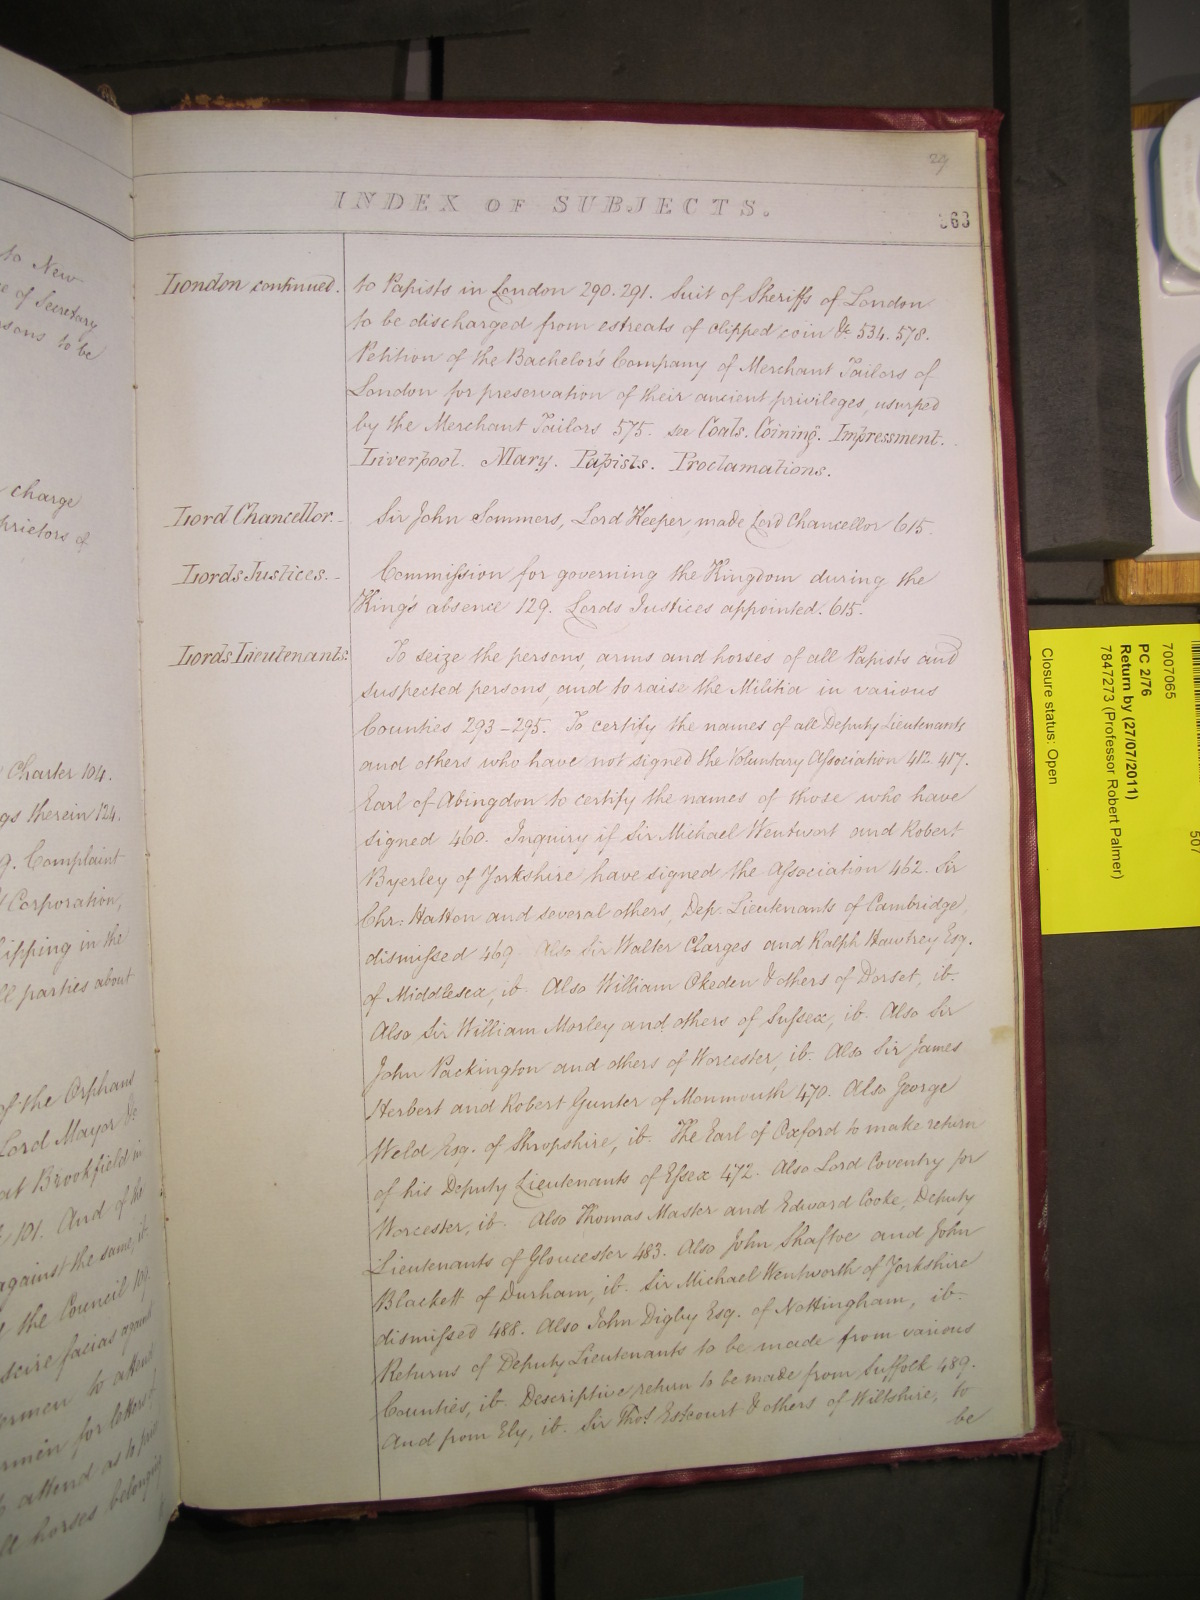 to New
e of Secretary
sons to be
charge
prietors of
Charter 104.
gs therein 124.
9. Complaint
Corporation,
lipping in the
ll parties about
of the Orphans
Lord Mayor &c
at Brookfield in
101. And of the
against the same, ib.
the Council 109.
scire facias against
ermen to attend
rmen for letters
attend as to
ll horses belonging
29
INDEX OF SUBJECTS.
363
London continued. to Papists in London 290. 291. Suit of Sheriffs of London
to be discharged from estreats of clipped coin &c 534. 578.
Petition of the Bachelor's Company of Merchant Tailors of
London for preservation of their ancient privileges, usurped
by the Merchant Tailors 575. see Coals. Coining. Impressment.
Liverpool. Mary. Papists. Proclamations.
Lord Chancellor. Sir John Sommers, Lord Keeper, made Lord Chancellor 615.
Lords Justices. Commission for governing the Kingdom during the
King's absence 129. Lords Justices appointed. 615.
Lords Lieutenants. To seize the persons, arms and horses of all Papists and
suspected persons, and to raise the Militia in various
Counties 293-295. To certify the names of all Deputy Lieutenants
and others who have not signed the Voluntary Association 412. 417.
Earl of Abingdon to certify the names of those who have
signed 460. Inquiry if Sir Michael Wentwort and Robert
Byerley of Yorkshire have signed the Association 462. Sir
Chr: Hatton and several others, Dep. Lieutenants of Cambridge,
dismissed 469. Also Sir Walter Clarges and Ralph Hawtrey Esq.
of Middlesex, ib. Also William Okeden & others of Dorset, ib.
Also Sir William Morley and others of Sussex, ib. Also Sir
John Packington and others of Worcester, ib. Also Sir James
Herbert and Robert Gunter of Monmouth 470. Also George
Weld Esq. of Shropshire, ib. The Earl of Oxford to make return
of his Deputy Lieutenants of Essex 472. Also Lord Coventry for
Worcester, ib. Also Thomas Master and Edward Cooke, Deputy
Lieutenants of Gloucester 483. Also John Shaftoe and John
Blackett of Durham, ib. Sir Michael Wentworth of Yorkshire
dismissed 488. Also John Digby Esq. of Nottingham, ib.
Returns of Deputy Lieutenants to be made from various
Counties, ib. Descriptive return to be made from Suffolk 489.
And from Ely, ib. Sir Thos. Estcourt & others of Wiltshire, to
be
507
7007065
PC 2/76
Return by (27/07/2011)
7847273 (Professor Robert Palmer)
Closure status: Open